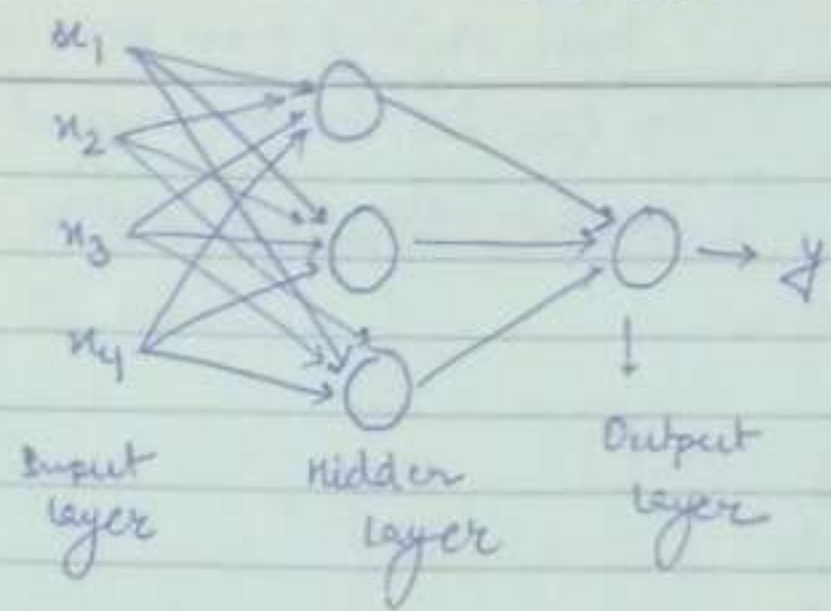 x1
x2
x3
x4
y
Input layer
Hidden layer
Output layer